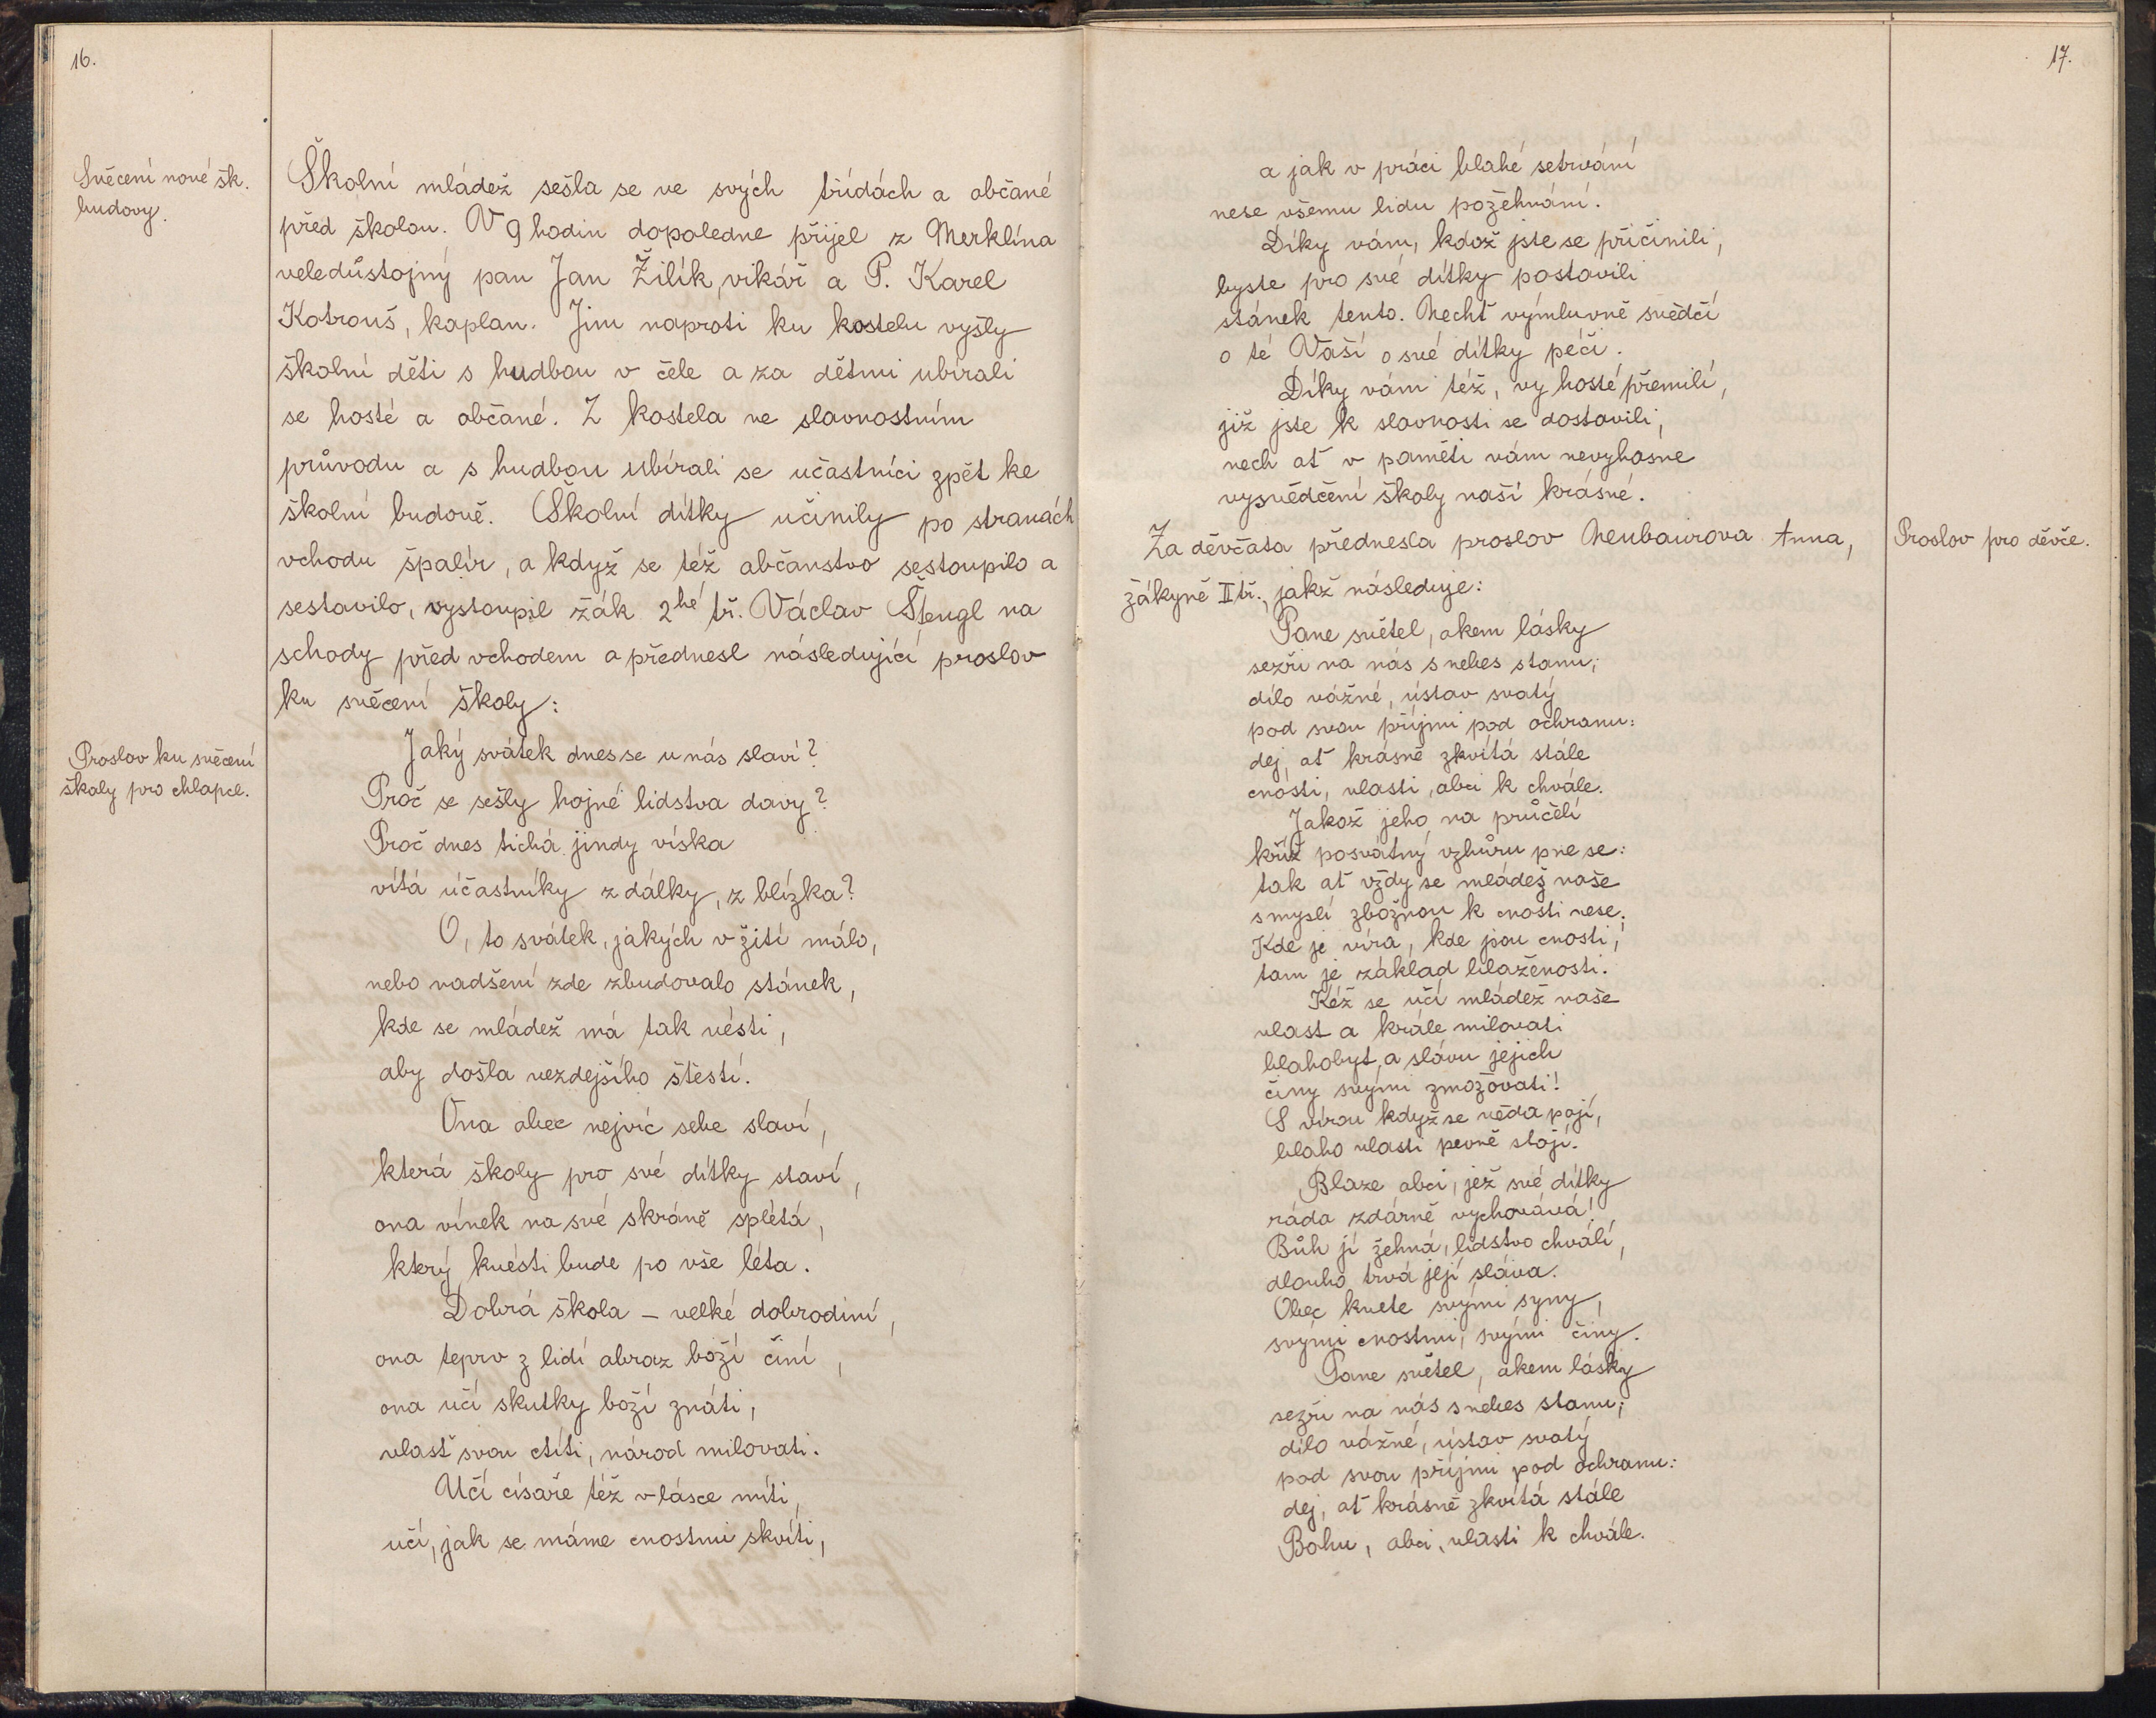 16.
Svěcení nové šk.
budovy.
Školní mládež sešla se ve svých třídách a občané
před školou. V 9 hodin dopoledne přijel z Merklína
veledůstojný pan Jan Žilík, vikář a P. Karel
Kotrouš, kaplan. Jim naproti ku kostelu vyšly
školní děti s hudbou v čele a za dětmi ubírali
se hosté a občané. Z kostela ve slavnostním
průvodu a s hudbou ubírali se učastníci zpět ke
školní budově. Školní dítky učinily po stranách
vchodu špalír, a když se též občanstvo sestoupilo a
sestavilo, vystoupil žák 2hé tř. Václav Štengl na
schody před vchodem a přednesl následující proslov
ku svěcení školy:
Proslov ku svěcení
školy pro chlapce.
Jaký svátek dnes se u nás slaví?
Proč se sešly hojné lidstva davy?
Proč dnes tichá jindy víska
vítá účastníky z dálky, z blízka?
O, to svátek, jakých v žití málo,
nebo nadšení zde zbudovalo stánek,
kde se mládež má tak vésti,
aby došla vezdejšího štěstí.
Ona obec nejvíc sebe slaví,
která školy pro své dítky staví,
ona vínek na své skráně splétá,
který kvésti bude po vše léta.
Dobrá škola – velké dobrodiní,
ona teprv z lidí obraz boží činí,
ona učí skutky boží znáti,
vlasť svou ctíti, národ milovati.
Učí císaře též v lásce míti,
učí, jak se máme cnostmi skvíti,
17.
a jak v práci blahé setrvání
nese všemu lidu požehnání.
Díky vám, kdož jste se přičinili,
byste pro své dítky postavili
stánek tento. Nechť výmluvně svědčí
o té Vaší o své dítky péči.
Díky vám též, vy hosté přemilí,
již jste k slavnosti se dostavili,
nech ať v paměti vám nevyhasne
vysvědčení školy naší krásné.
Za děvčata přednesla proslov Neubaurova Anna,
žákyně II tř., jakž následuje:
Proslov pro děvče.
Pane světel, okem lásky
sezři na nás s nebes stanu;
dílo vážné, ústav svatý
pod svou přijmi pod ochranu:
dej, ať krásně zkvítá stále
cnosti, vlasti, obci k chvále.
Jakož jeho na průčelí
kříž posvátný vzhůru pne se:
tak ať vždy se mládež naše
smyslí zbožnou k cnosti nese.
Kde je víra, kde jsou cnosti,
tam je základ blaženosti.
Kéž se učí mládež naše
vlast a krále milovati
blahobyt a slávu jejich
činy svými zmožovati!
S vírou když se věda pojí,
blaho vlasti pevně stojí.
Blaze obci, jež své dítky
ráda zdárně vychovává!
Bůh jí žehná, lidstvo chválí,
dlouho trvá její sláva.
Obec kvete svými syny,
svými cnostmi, svými činy.
Pane světel, okem lásky
sezři na nás s nebes stanu;
dílo vážné, ústav svatý
pod svou přijmi pod ochranu:
dej, ať krásně zkvítá stále
Bohu, obci, vlasti k chvále.